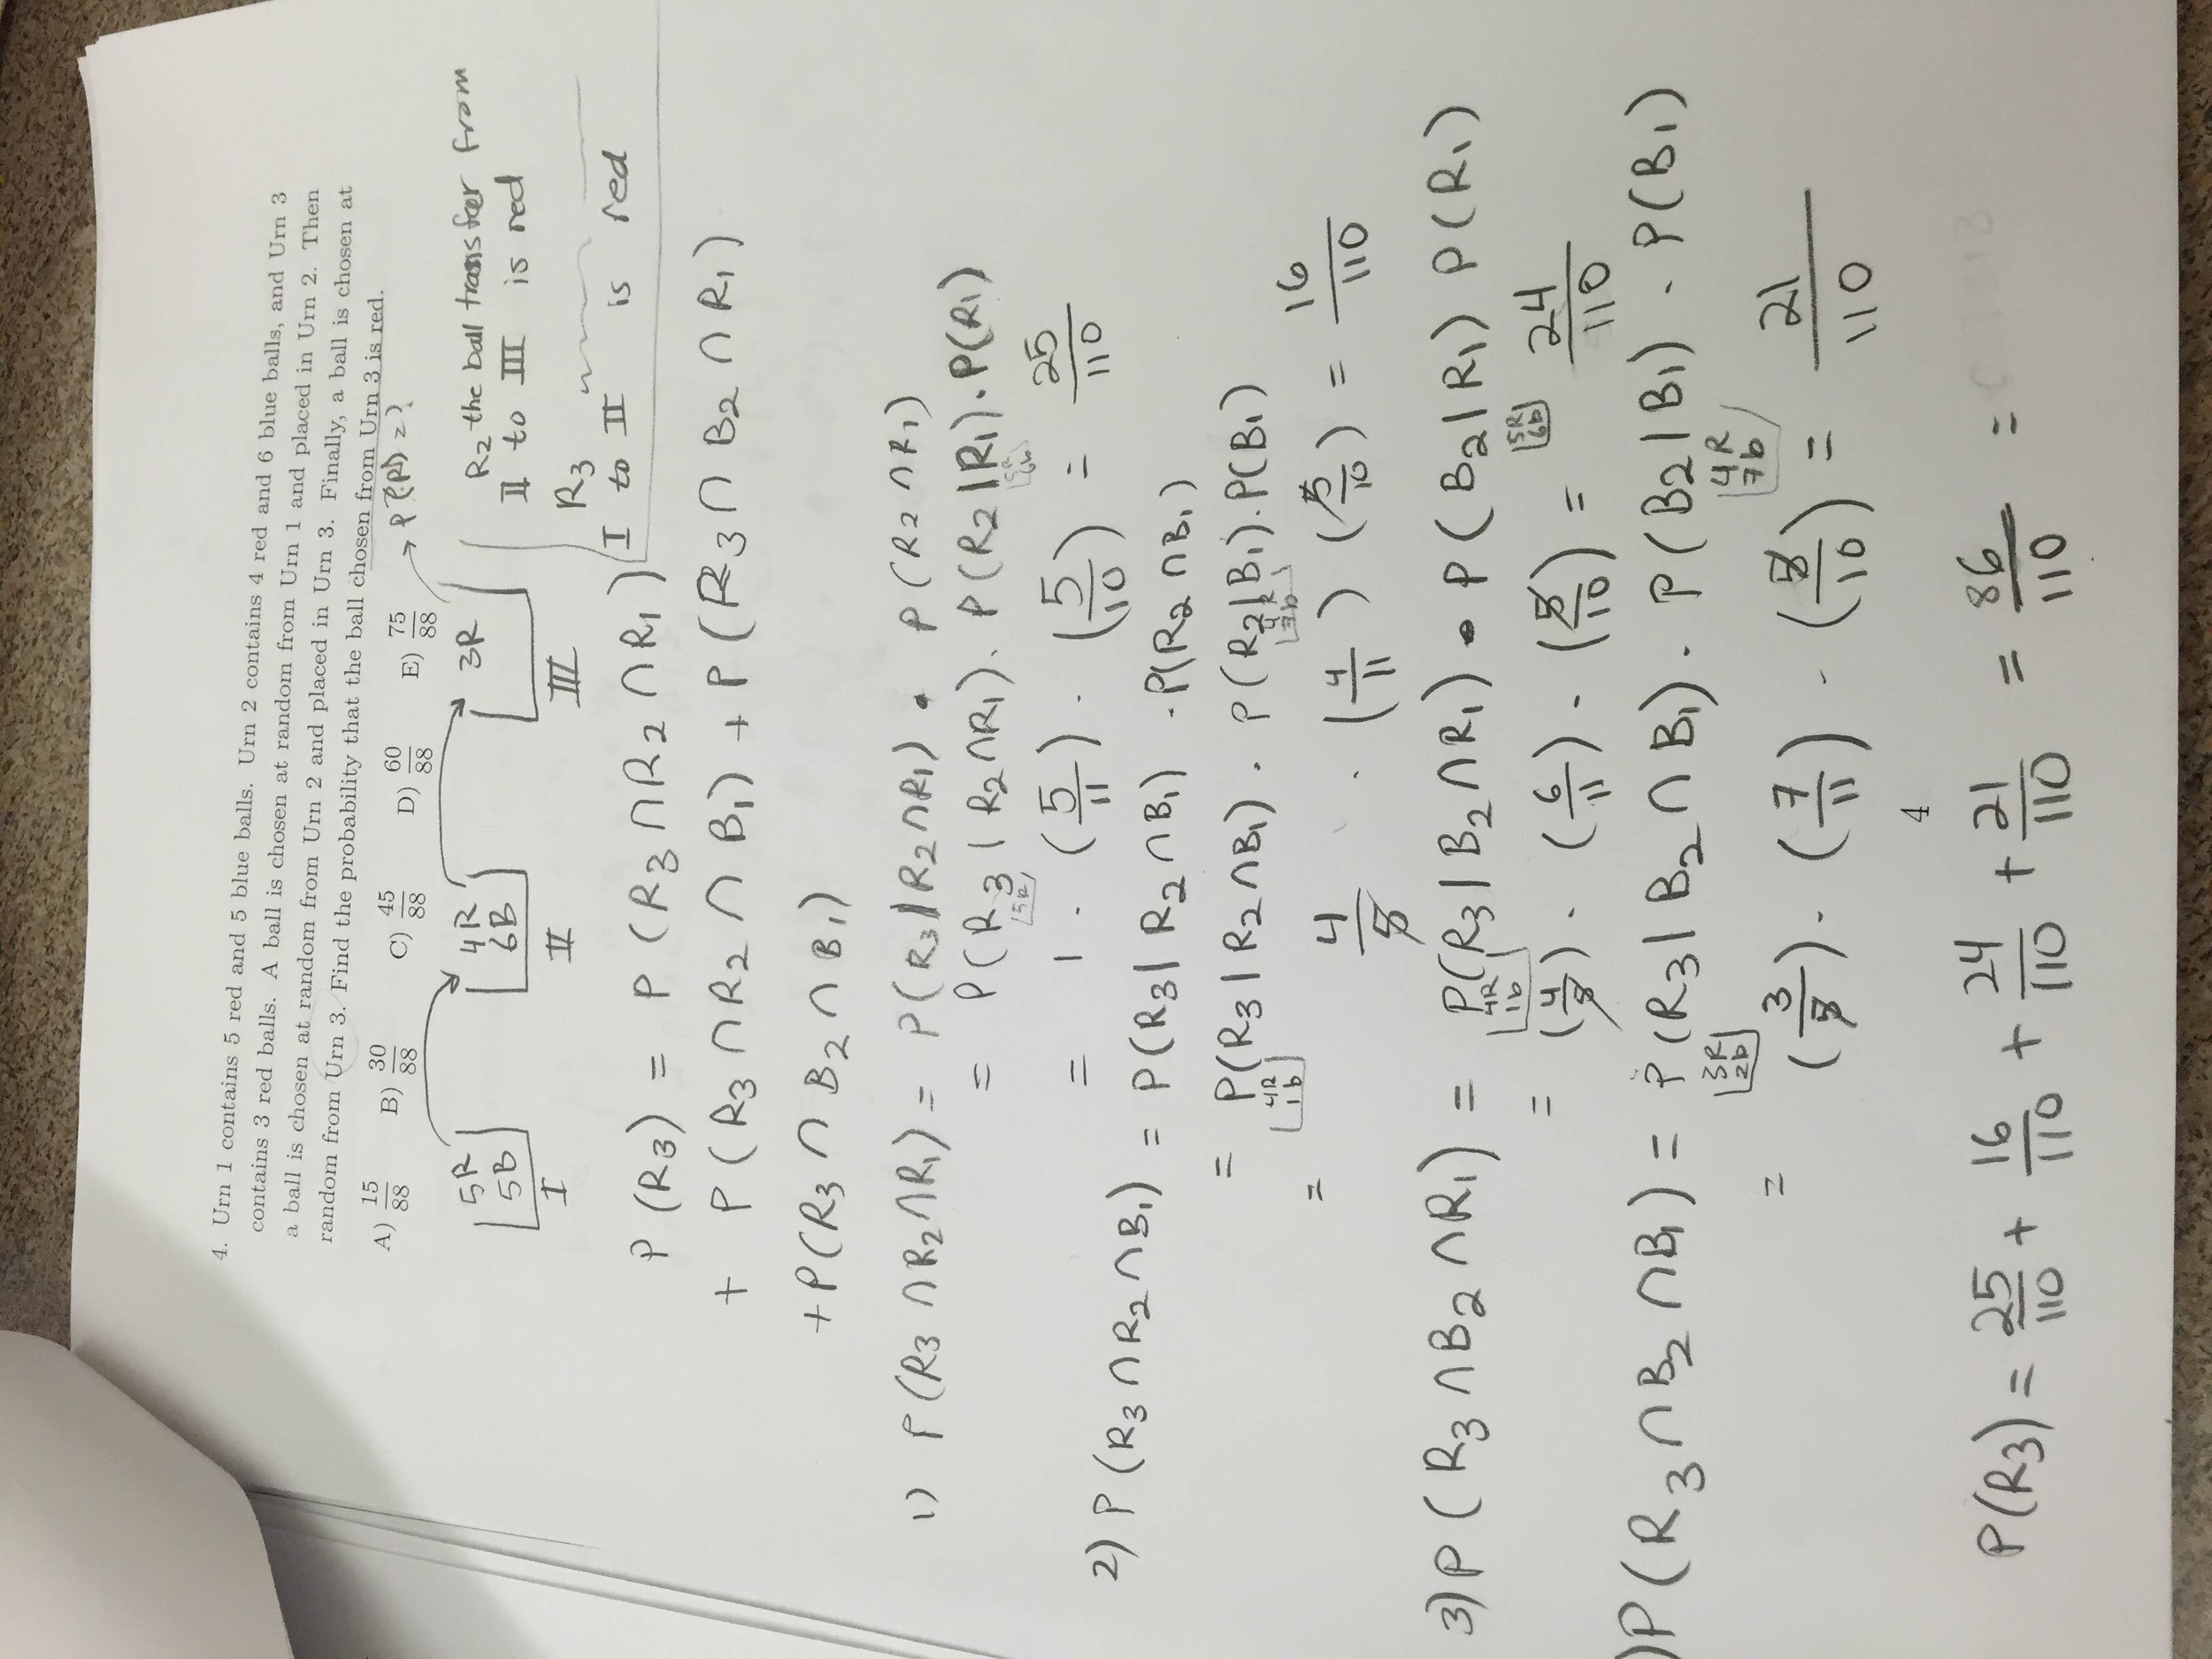 4. Urn 1 contains 5 red and 5 blue balls. Urn 2 contains 4 red and 6 blue balls, and Urn 3
contains 3 red balls. A ball is chosen at random from Urn 1 and placed in Urn 2. Then
a ball is chosen at random from Urn 2 and placed in Urn 3. Finally, a ball is chosen at
random from Urn 3. Find the probability that the ball chosen from Urn 3 is red.
A) 15/88 B) 30/88 C) 45/88 D) 60/88 E) 75/88
→ P(R) = ?
5R 4R 3R
5B 6B
I II III
R2 the ball transfer from
II to III is red
R3
I to II is red
P(R3) = P(R3 ∩ R2 ∩ R1)
+ P(R3 ∩ R2 ∩ B1) + P(R3 ∩ B2 ∩ R1)
+ P(R3 ∩ B2 ∩ B1)
1) P(R3 ∩ R2 ∩ R1) = P(R3 | R2 ∩ R1) • P(R2 ∩ R1)
= P(R3 | R2 ∩ R1) · P(R2 | R1) · P(R1)
5R
= 1 · (5/11) · (5/10) = 25/110
2) P(R3 ∩ R2 ∩ B1) = P(R3 | R2 ∩ B1) · P(R2 ∩ B1)
= P(R3 | R2 ∩ B1) · P(R2 | B1) · P(B1)
4R 1b
= 4/5 · (4/11) (5/10) = 16/110
3) P(R3 ∩ B2 ∩ R1) = P(R3 | B2 ∩ R1) • P(B2 | R1) P(R1)
4R 1b 5R 6b
= (4/5) · (6/11) · (5/10) = 24/110
) P(R3 ∩ B2 ∩ B1) = P(R3 | B2 ∩ B1) · P(B2 | B1) · P(B1)
3R 2b 4R 7b
= (3/5) · (7/11) · (5/10) = 21/110
4
P(R3) = 25/110 + 16/110 + 24/110 + 21/110 = 86/110 =